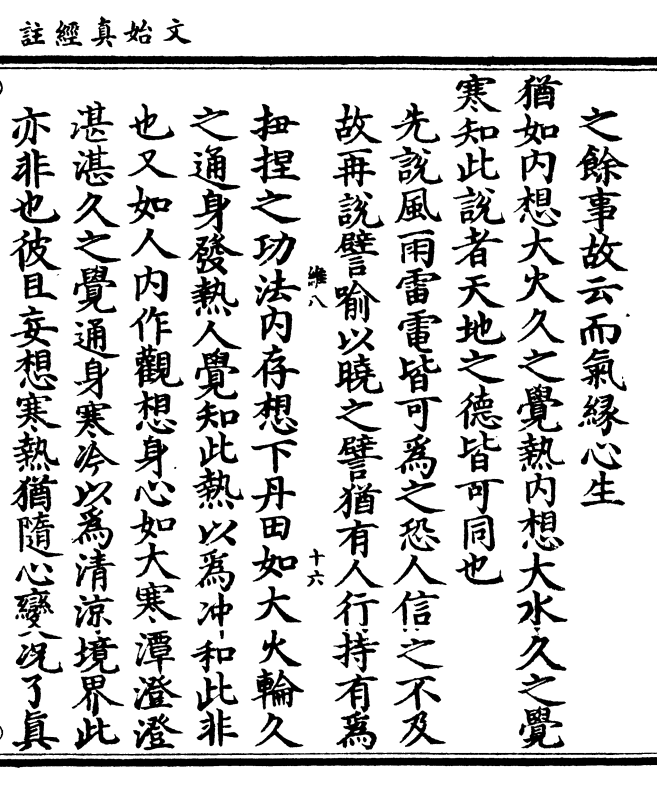 文始真經註
之餘事故云而氣緣心生
猶如內想大火久之覺熱內想大水久之覺
寒知此說者天地之德皆可同也
先說風雨雷電皆可為之恐人信之不及
故再說譬喻以曉之譬猶有人行持有為
維八
十六
扭捏之功法內存想下丹田如大火輪久
之通身發熱人覺知此熱以為冲和此非
也又如人內作觀想身心如大寒潭澄澄
湛湛久之覺通身寒冷以為清涼境界此
亦非也彼且妄想寒熱猶隨心變况了真